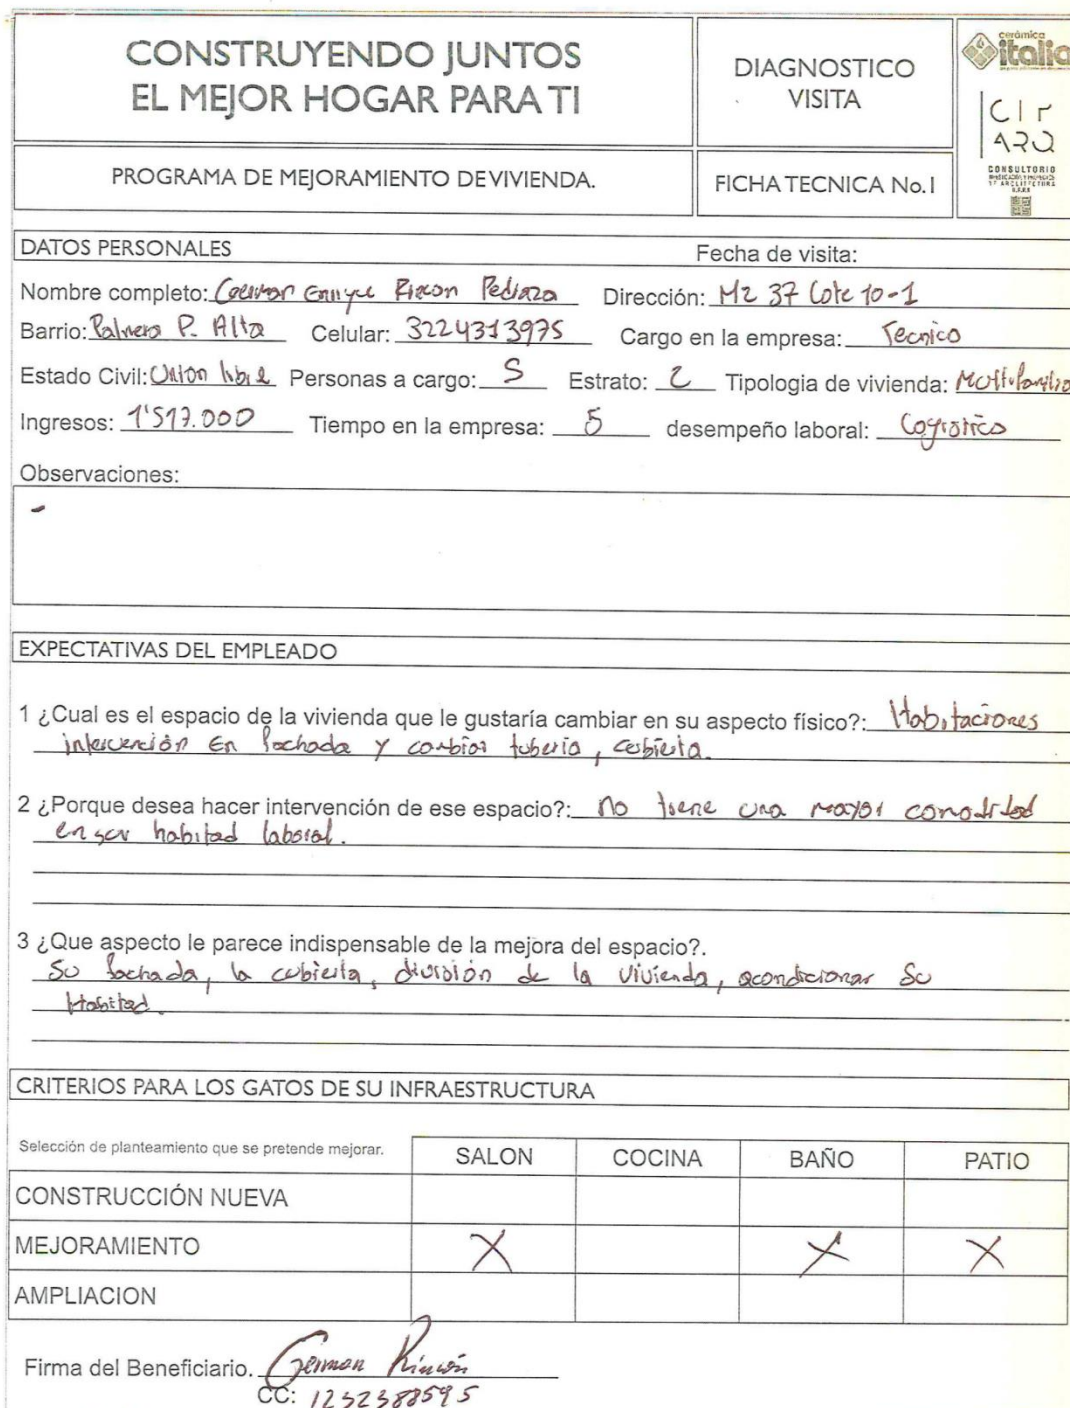 CONSTRUYENDO JUNTOS
EL MEJOR HOGAR PARA TI
DIAGNOSTICO
VISITA
cerámica
italia
CIP
ARQ
CONSULTORIO
PROGRAMA DE MEJORAMIENTO DE VIVIENDA.
FICHA TECNICA No.1
DATOS PERSONALES Fecha de visita:
Nombre completo: German Enrique Rincon Pedraza Dirección: Mz 37 Lote 10-1
Barrio: Palmera P. Alta Celular: 3224313975 Cargo en la empresa: Tecnico
Estado Civil: Union libre Personas a cargo: 5 Estrato: 2 Tipologia de vivienda: Multifamiliar
Ingresos: 1'517.000 Tiempo en la empresa: 5 desempeño laboral: Logistico
Observaciones:
-
EXPECTATIVAS DEL EMPLEADO
1 ¿Cual es el espacio de la vivienda que le gustaría cambiar en su aspecto físico?: Habitaciones
intervención En fachada y cambiar tuberia, cubierta.
2 ¿Porque desea hacer intervención de ese espacio?: No tiene una mayor comodidad
en su habitad laboral.
3 ¿Que aspecto le parece indispensable de la mejora del espacio?.
Su fachada, la cubierta, división de la vivienda, acondicionar Su
Habitad.
CRITERIOS PARA LOS GATOS DE SU INFRAESTRUCTURA
Selección de planteamiento que se pretende mejorar. SALON COCINA BAÑO PATIO
CONSTRUCCIÓN NUEVA
MEJORAMIENTO X X X
AMPLIACION
Firma del Beneficiario. German Rincón
CC: 1232388595